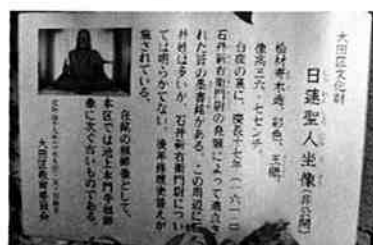 大田区文化財
日蓮聖人坐像(非公開)
松材寄木造、彩色、玉眼、
像高三六.七センチ。
台座の裏に、慶長十七年(一六一二)
石井新右衛門尉の発願によって造立さ
れた旨の墨書銘がある。この周辺に石
井姓は多いが、石井新右衛門尉につい
ては明らかでない。後年修理塗替えが
施されている。
在銘の祖師像として、
本区では池上本門寺祖師
像に次ぐ古いものである。
大田区教育委員会